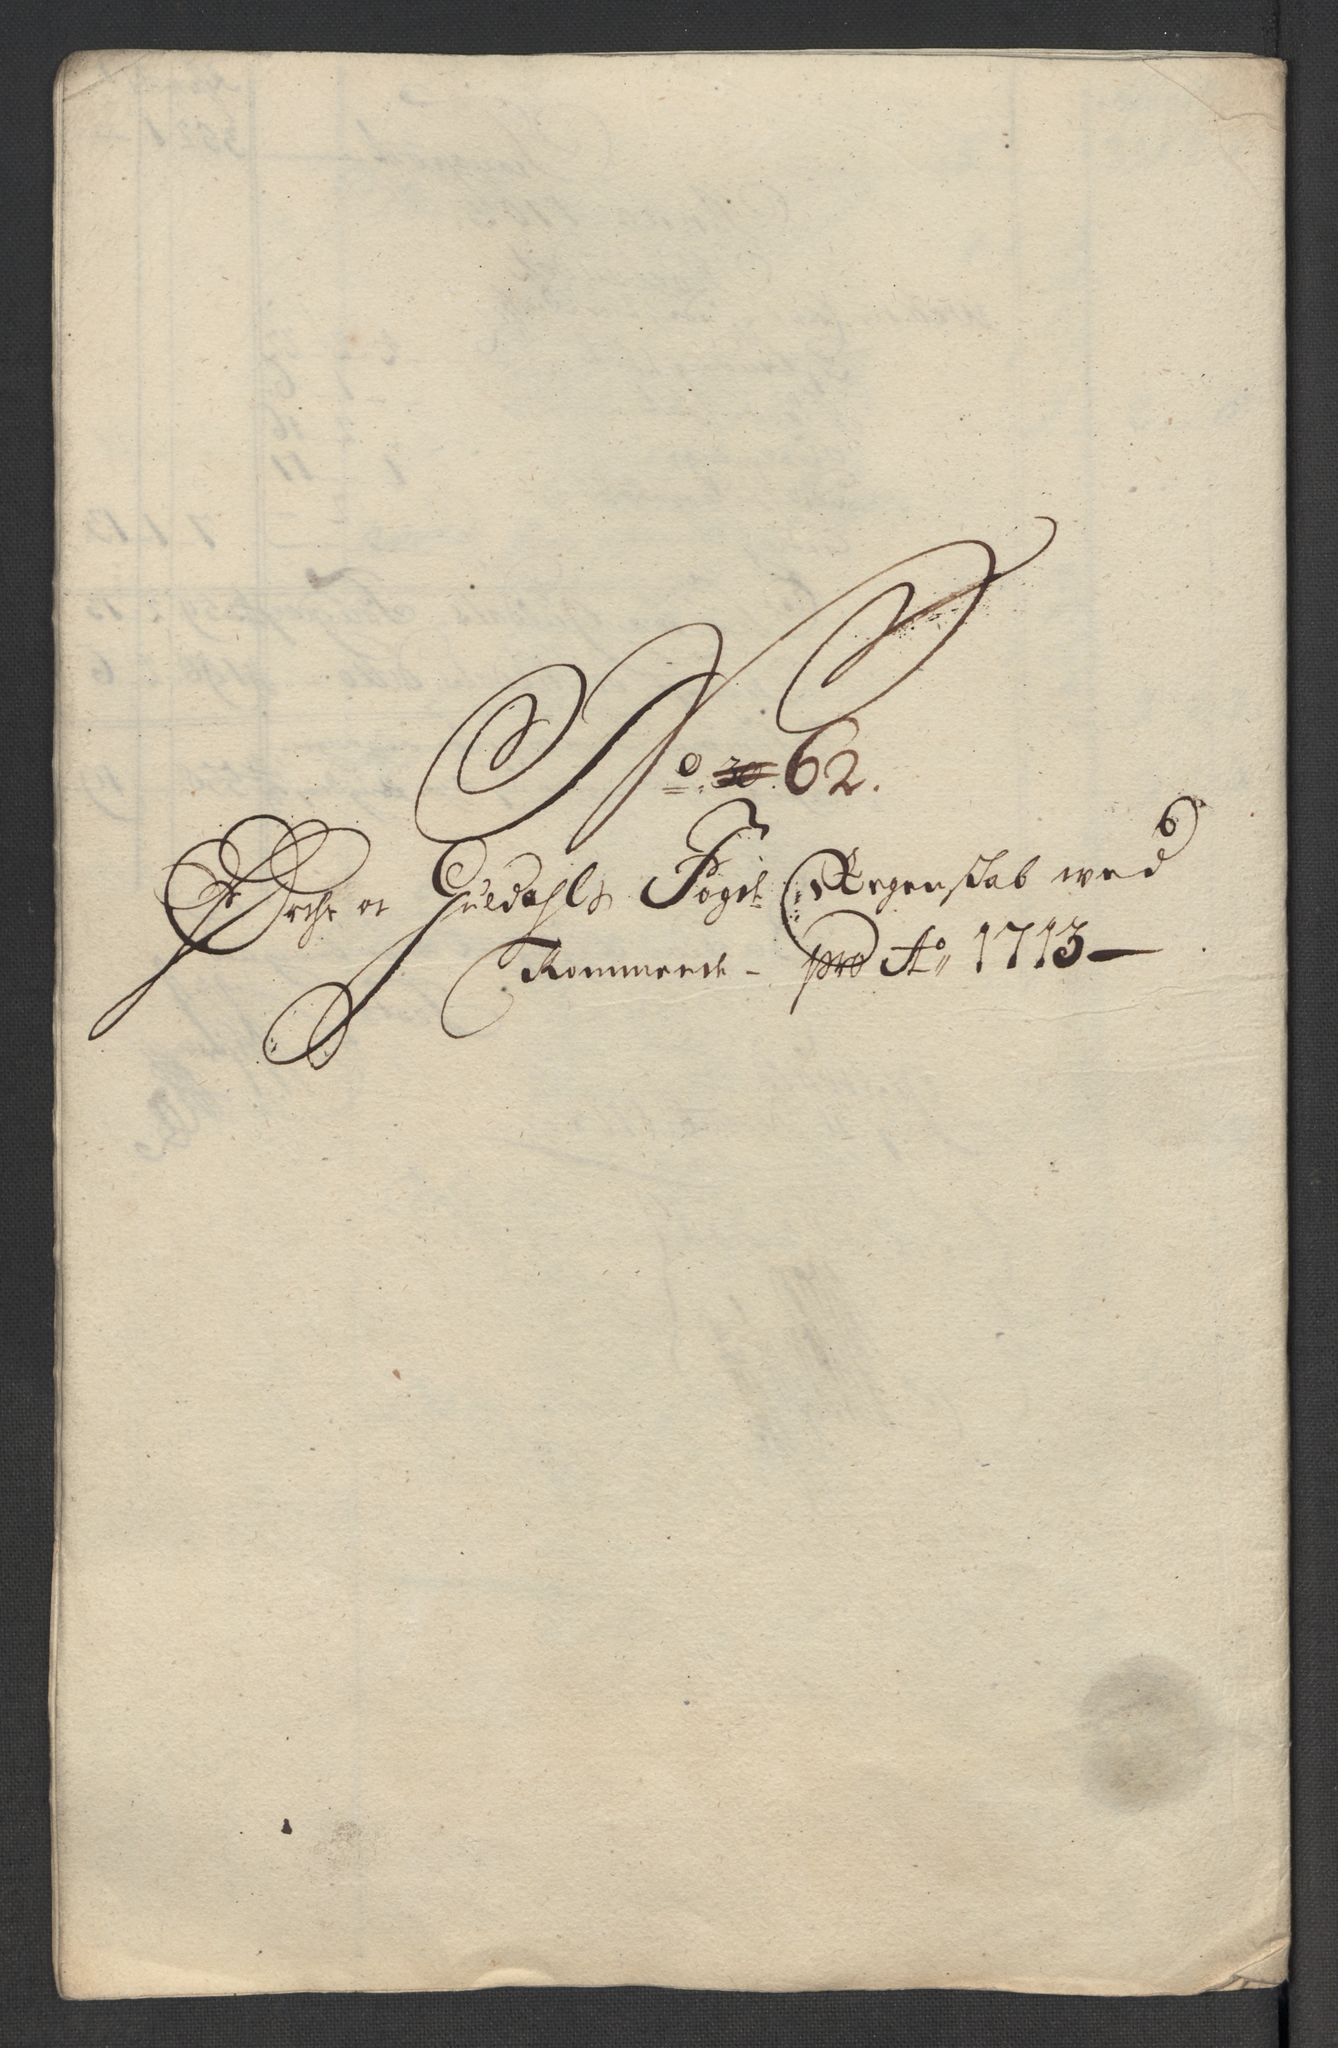 No. 30. 62.
Orche oc Guldahls Fogd Regenskab wed
Kommende - pro Ao 1713 -